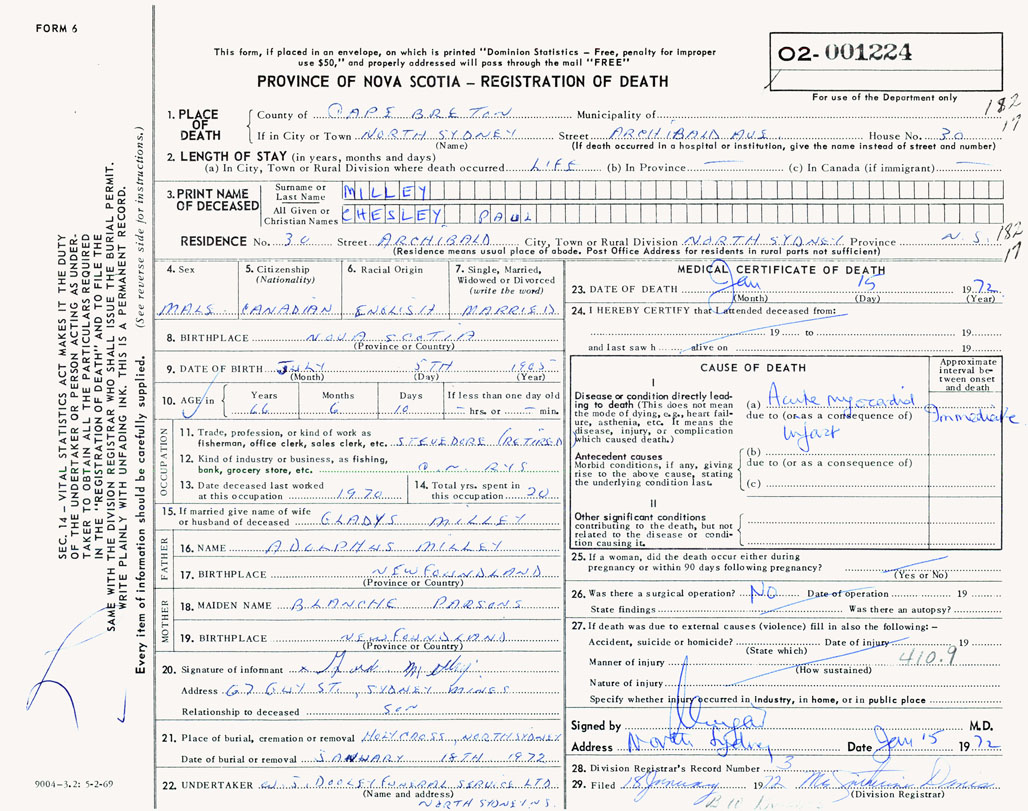 FORM 6
This form, if placed in an envelope, on which is printed "Dominion Statistics – Free, penalty for improper
use $50," and properly addressed will pass through the mail "FREE"
PROVINCE OF NOVA SCOTIA – REGISTRATION OF DEATH
02-001224
For use of the Department only
182
17
1. PLACE OF DEATH
County of CAPE BRETON Municipality of
If in City or Town NORTH SYDNEY Street ARCHIBALD AVE House No. 30
(Name) (If death occurred in a hospital or institution, give the name instead of street and number)
2. LENGTH OF STAY (in years, months and days)
(a) In City, Town or Rural Division where death occurred LIFE (b) In Province — (c) In Canada (if immigrant) —
3. PRINT NAME OF DECEASED
Surname or Last Name MILLEY
All Given or Christian Names CHESLEY PAUL
RESIDENCE No. 30 Street ARCHIBALD City, Town or Rural Division NORTH SYDNEY Province N.S.
(Residence means usual place of abode. Post Office Address for residents in rural parts not sufficient)
182
17
4. Sex
MALE
5. Citizenship
(Nationality)
CANADIAN
6. Racial Origin
ENGLISH
7. Single, Married,
Widowed or Divorced
(write the word)
MARRIED
8. BIRTHPLACE NOVA SCOTIA
(Province or Country)
9. DATE OF BIRTH JULY 5TH 1905
(Month) (Day) (Year)
10. AGE in Years Months Days If less than one day old
66 6 10 – hrs. or – min.
OCCUPATION
11. Trade, profession or kind of work as
fisherman, office clerk, sales clerk, etc. STEVEDORE (RETIRED)
12. Kind of industry or business, as fishing,
bank, grocery store, etc. C.N. RYS
13. Date deceased last worked
at this occupation 1970
14. Total yrs. spent in
this occupation 20
15. If married give name of wife
or husband of deceased GLADYS MILLEY
FATHER
16. NAME ADOLPHUS MILLEY
17. BIRTHPLACE NEWFOUNDLAND
(Province or Country)
MOTHER
18. MAIDEN NAME BLANCHE PARSONS
19. BIRTHPLACE NEWFOUNDLAND
(Province or Country)
20. Signature of informant x Milley
Address 67 GUY ST., SYDNEY MINES
Relationship to deceased SON
21. Place of burial, cremation or removal HOLY CROSS, NORTH SYDNEY
Date of burial or removal JANUARY 18TH 1972
22. UNDERTAKER W. J. DOOLEY FUNERAL SERVICE LTD.
(Name and address)
NORTH SYDNEY N.S.
MEDICAL CERTIFICATE OF DEATH
23. DATE OF DEATH Jan 15 1972
(Month) (Day) (Year)
24. I HEREBY CERTIFY that I attended deceased from:
19 to 19
and last saw h alive on 19
CAUSE OF DEATH
Approximate
interval be-
tween onset
and death
I
Disease or condition directly lead-
ing to death (This does not mean
the mode of dying, e.g., heart fail-
ure, asthenia, etc. It means the
disease, injury, or complication
which caused death.)
(a) Acute myocardial
due to (or as a consequence of) Immediate
Infarct
Antecedent causes
Morbid conditions, if any, giving
rise to the above cause, stating
the underlying condition last.
(b)
due to (or as a consequence of)
(c)
II
Other significant conditions
contributing to the death, but not
related to the disease or condi-
tion causing it.
25. If a woman, did the death occur either during
pregnancy or within 90 days following pregnancy?
(Yes or No)
26. Was there a surgical operation? NO Date of operation 19
State findings Was there an autopsy?
27. If death was due to external causes (violence) fill in also the following: –
Accident, suicide or homicide? Date of injury 19
(State which) 410.9
Manner of injury
(How sustained)
Nature of injury
Specify whether injury occurred in industry, in home, or in public place
Signed by M.D.
Address North Sydney Date Jan 15 1972
28. Division Registrar's Record Number 3
29. Filed 18 January 1972
(Division Registrar)
SEC. 14 – VITAL STATISTICS ACT MAKES IT THE DUTY
OF THE UNDERTAKER OR PERSON ACTING AS UNDER-
TAKER TO OBTAIN THE PARTICULARS REQUIRED
IN THE "REGISTRATION OF DEATH" AND TO FILE THE
SAME WITH THE DIVISION REGISTRAR WHO SHALL ISSUE THE BURIAL PERMIT.
WRITE PLAINLY WITH UNFADING INK. THIS IS A PERMANENT RECORD.
Every item of information should be carefully supplied. (See reverse side for instructions.)
9004-3.2: 5-2-69